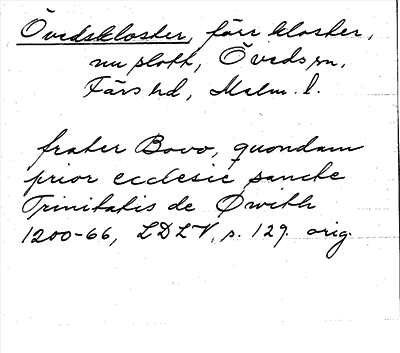 Övedskloster, förr kloster,
nu slott, Öveds sn,
Färs hd, Malm. l.
frater Bovo, quondam
prior ecclesie sancte
Trinitatis de Øwith
1200-66, LDLV, s. 129. orig.